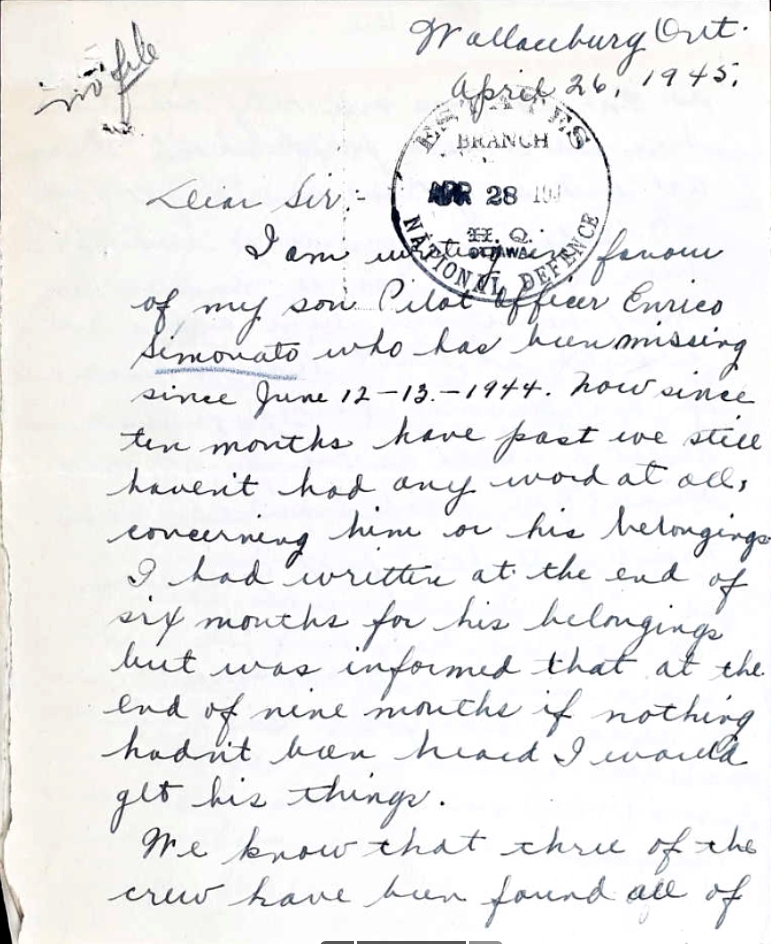 no file
Wallaceburg Ont.
April 26, 1945.
ESTATES
BRANCH
APR 28 19
H. Q.
OTTAWA
NATIONAL DEFENCE
Dear Sir:-
I am writing in favour
of my son Pilot Officer Enrico
Simonato who has been missing
since June 12-13.-1944. Now since
ten months have past we still
haven't had any word at all,
concerning him or his belongings
I had written at the end of
six months for his belongings
but was informed that at the
end of nine months if nothing
hadn't been heard I would
get his things.
We know that three of the
crew have been found all of